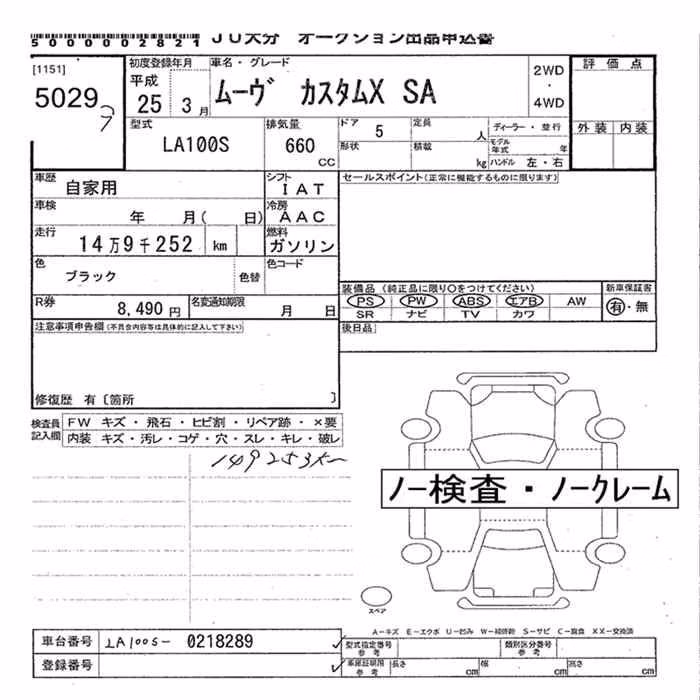 5000002821 JU大分 オークション出品申込書
[1151]
5029
7
初度登録年月
平成
25 3 月
車名・グレード
ムーヴ カスタムX SA
2WD
・
4WD
評価点
外装 内装
型式
LA100S
排気量
660
CC
ドア 5
定員 人
形状
積載 kg
ディーラー・並行
モデル年式 年
ハンドル 左・右
車歴 自家用
シフト
IAT
車検 年 月( 日)
冷房
AAC
走行 14万9千252 km
燃料
ガソリン
色 ブラック 色替
色コード
R券 8,490 円
名変通知期限 月 日
セールスポイント(正常に機能するものに限ります)
装備品 (純正品に限り○をつけてください)
PS PW ABS エアB AW
SR ナビ TV カワ
新車保証書
有・無
後日品
注意事項申告欄(不具合内容等は具体的に記入して下さい)
修復歴 有〔箇所 〕
検査員
記入欄
FW キズ・飛石・ヒビ割・リペア跡・×要
内装 キズ・汚レ・コゲ・穴・スレ・キレ・破レ
149253K~
ノー検査・ノークレーム
スペア
A-キズ E-エクボ U-凹み W-補修跡 S-サビ C-腐食 XX-交換済
車台番号 LA100S- 0218289
登録番号
型式指定番号
参考
類別区分番号
参考
車庫証明用
参考
長さ cm 幅 cm 高さ cm